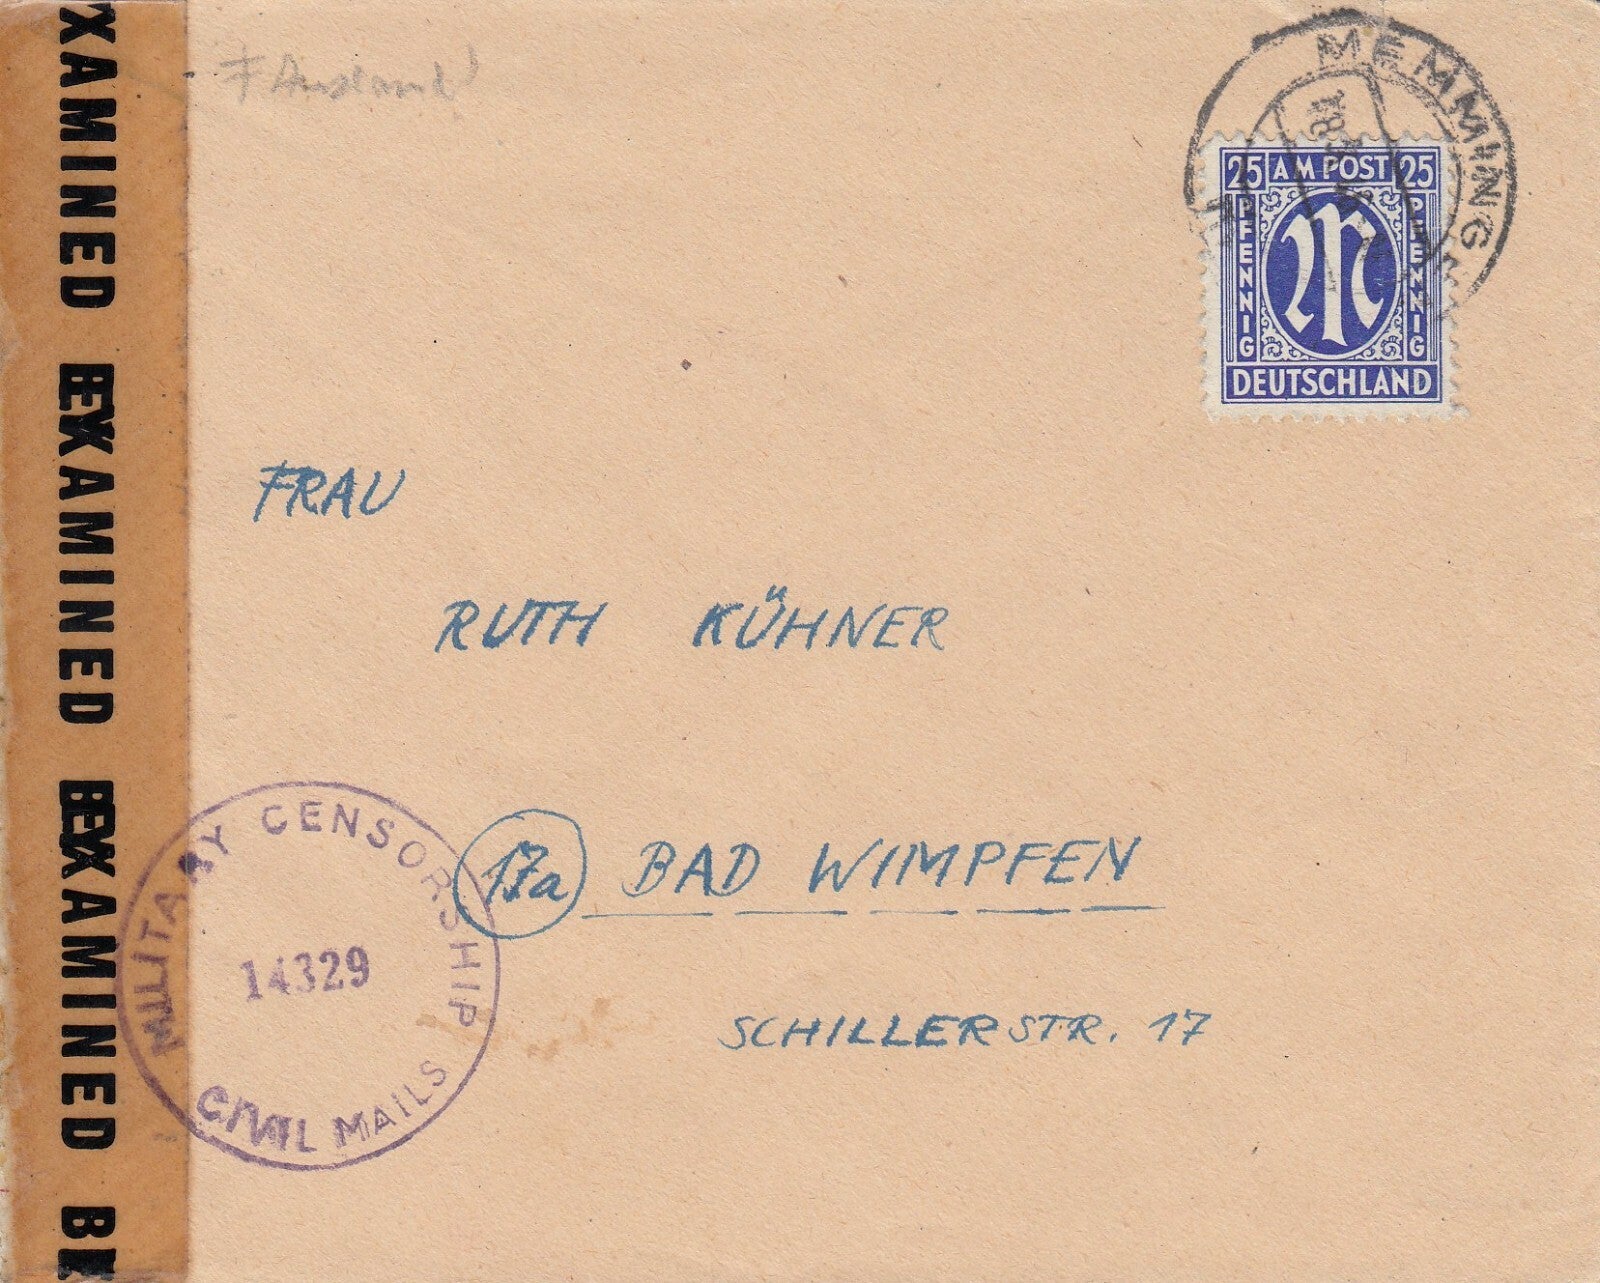 EXAMINED BEXAMINED BEXAMINED BE
MEMMINGEN
25 AM POST 25
PFENNIG
PFENNIG
DEUTSCHLAND
FRAU
RUTH KÜHNER
17a BAD WIMPFEN
SCHILLERSTR. 17
MILITARY CENSORSHIP
14329
CIVIL MAILS